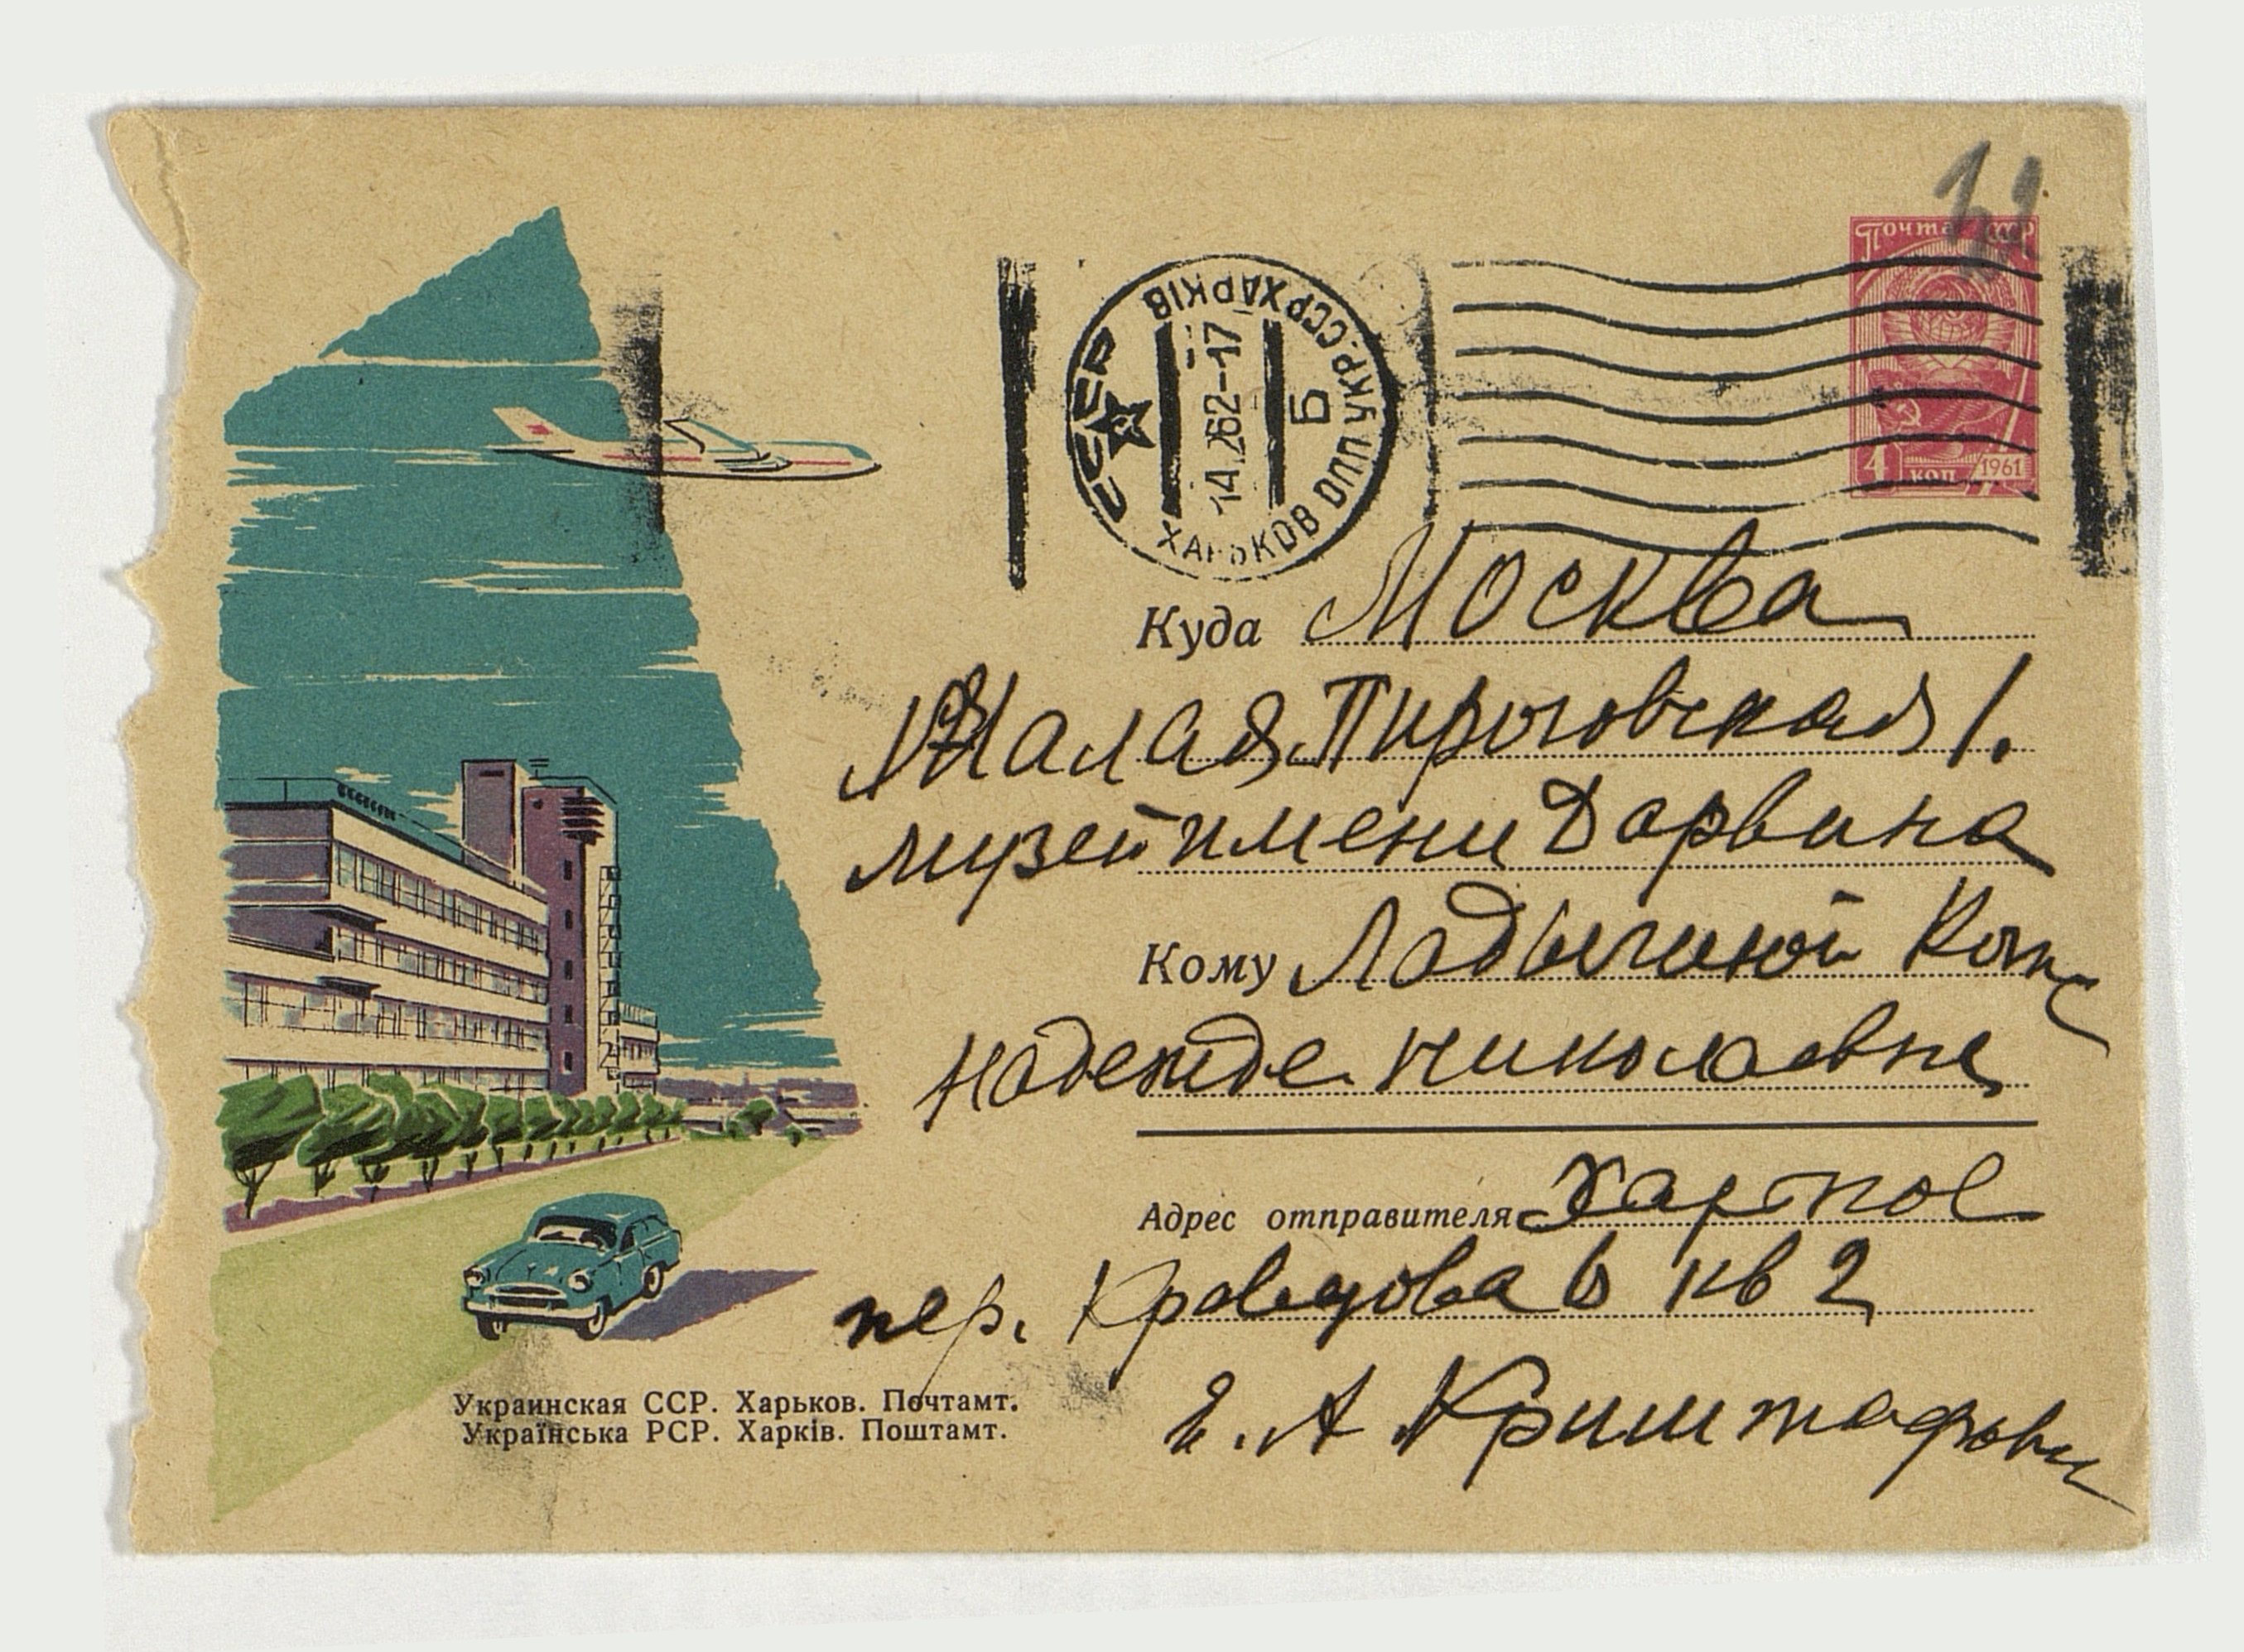 Почта СССР
4 коп 1961
СССР
ХАРЬКОВ ОПП УКР.ССР ХАРКІВ
14.262-17
Б
Куда Москва
Малая Пироговская 1.
музей имени Дарвина
Кому Ладыгиной Котс
Надежде Николаевне
Адрес отправителя Харьков
пер. Кравцова 6 кв 2
Е. А Криштафович
Украинская ССР. Харьков. Почтамт.
Українська РСР. Харків. Поштамт.